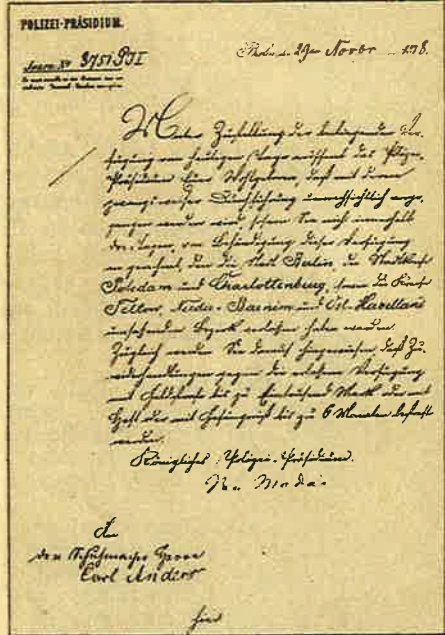 POLIZEI-PRÄSIDIUM.
Journ. Nº 3751 P. I
Berlin, den 29ten Novbr. 1878.
Unter Zustellung der beiliegenden Ver-
fügung vom heutigen Tage eröffnet das Polizei-
Präsidium Euer Wohlgeboren, daß mit deren
zwangsweiser Durchführung unnachsichtlich vorge-
gangen werden wird, sofern Sie nicht innerhalb
drei Tagen, von Behändigung dieser Verfügung
an gerechnet, den die Stadt Berlin, die Stadtkreise
Potsdam und Charlottenburg, sowie die Kreise
Teltow, Nieder-Barnim und Ost-Havelland
umfassenden Bezirk verlassen haben werden.
Zugleich werden Sie darauf hingewiesen, daß Zu-
widerhandlungen gegen die erlassene Verfügung
mit Geldstrafe bis zu Eintausend Mark oder mit
Haft oder mit Gefängniß bis zu 6 Monaten bestraft
werden.
Königliches Polizei-Präsidium.
von Madai
An
den Schuhmacher Herrn
Carl Anders
hier